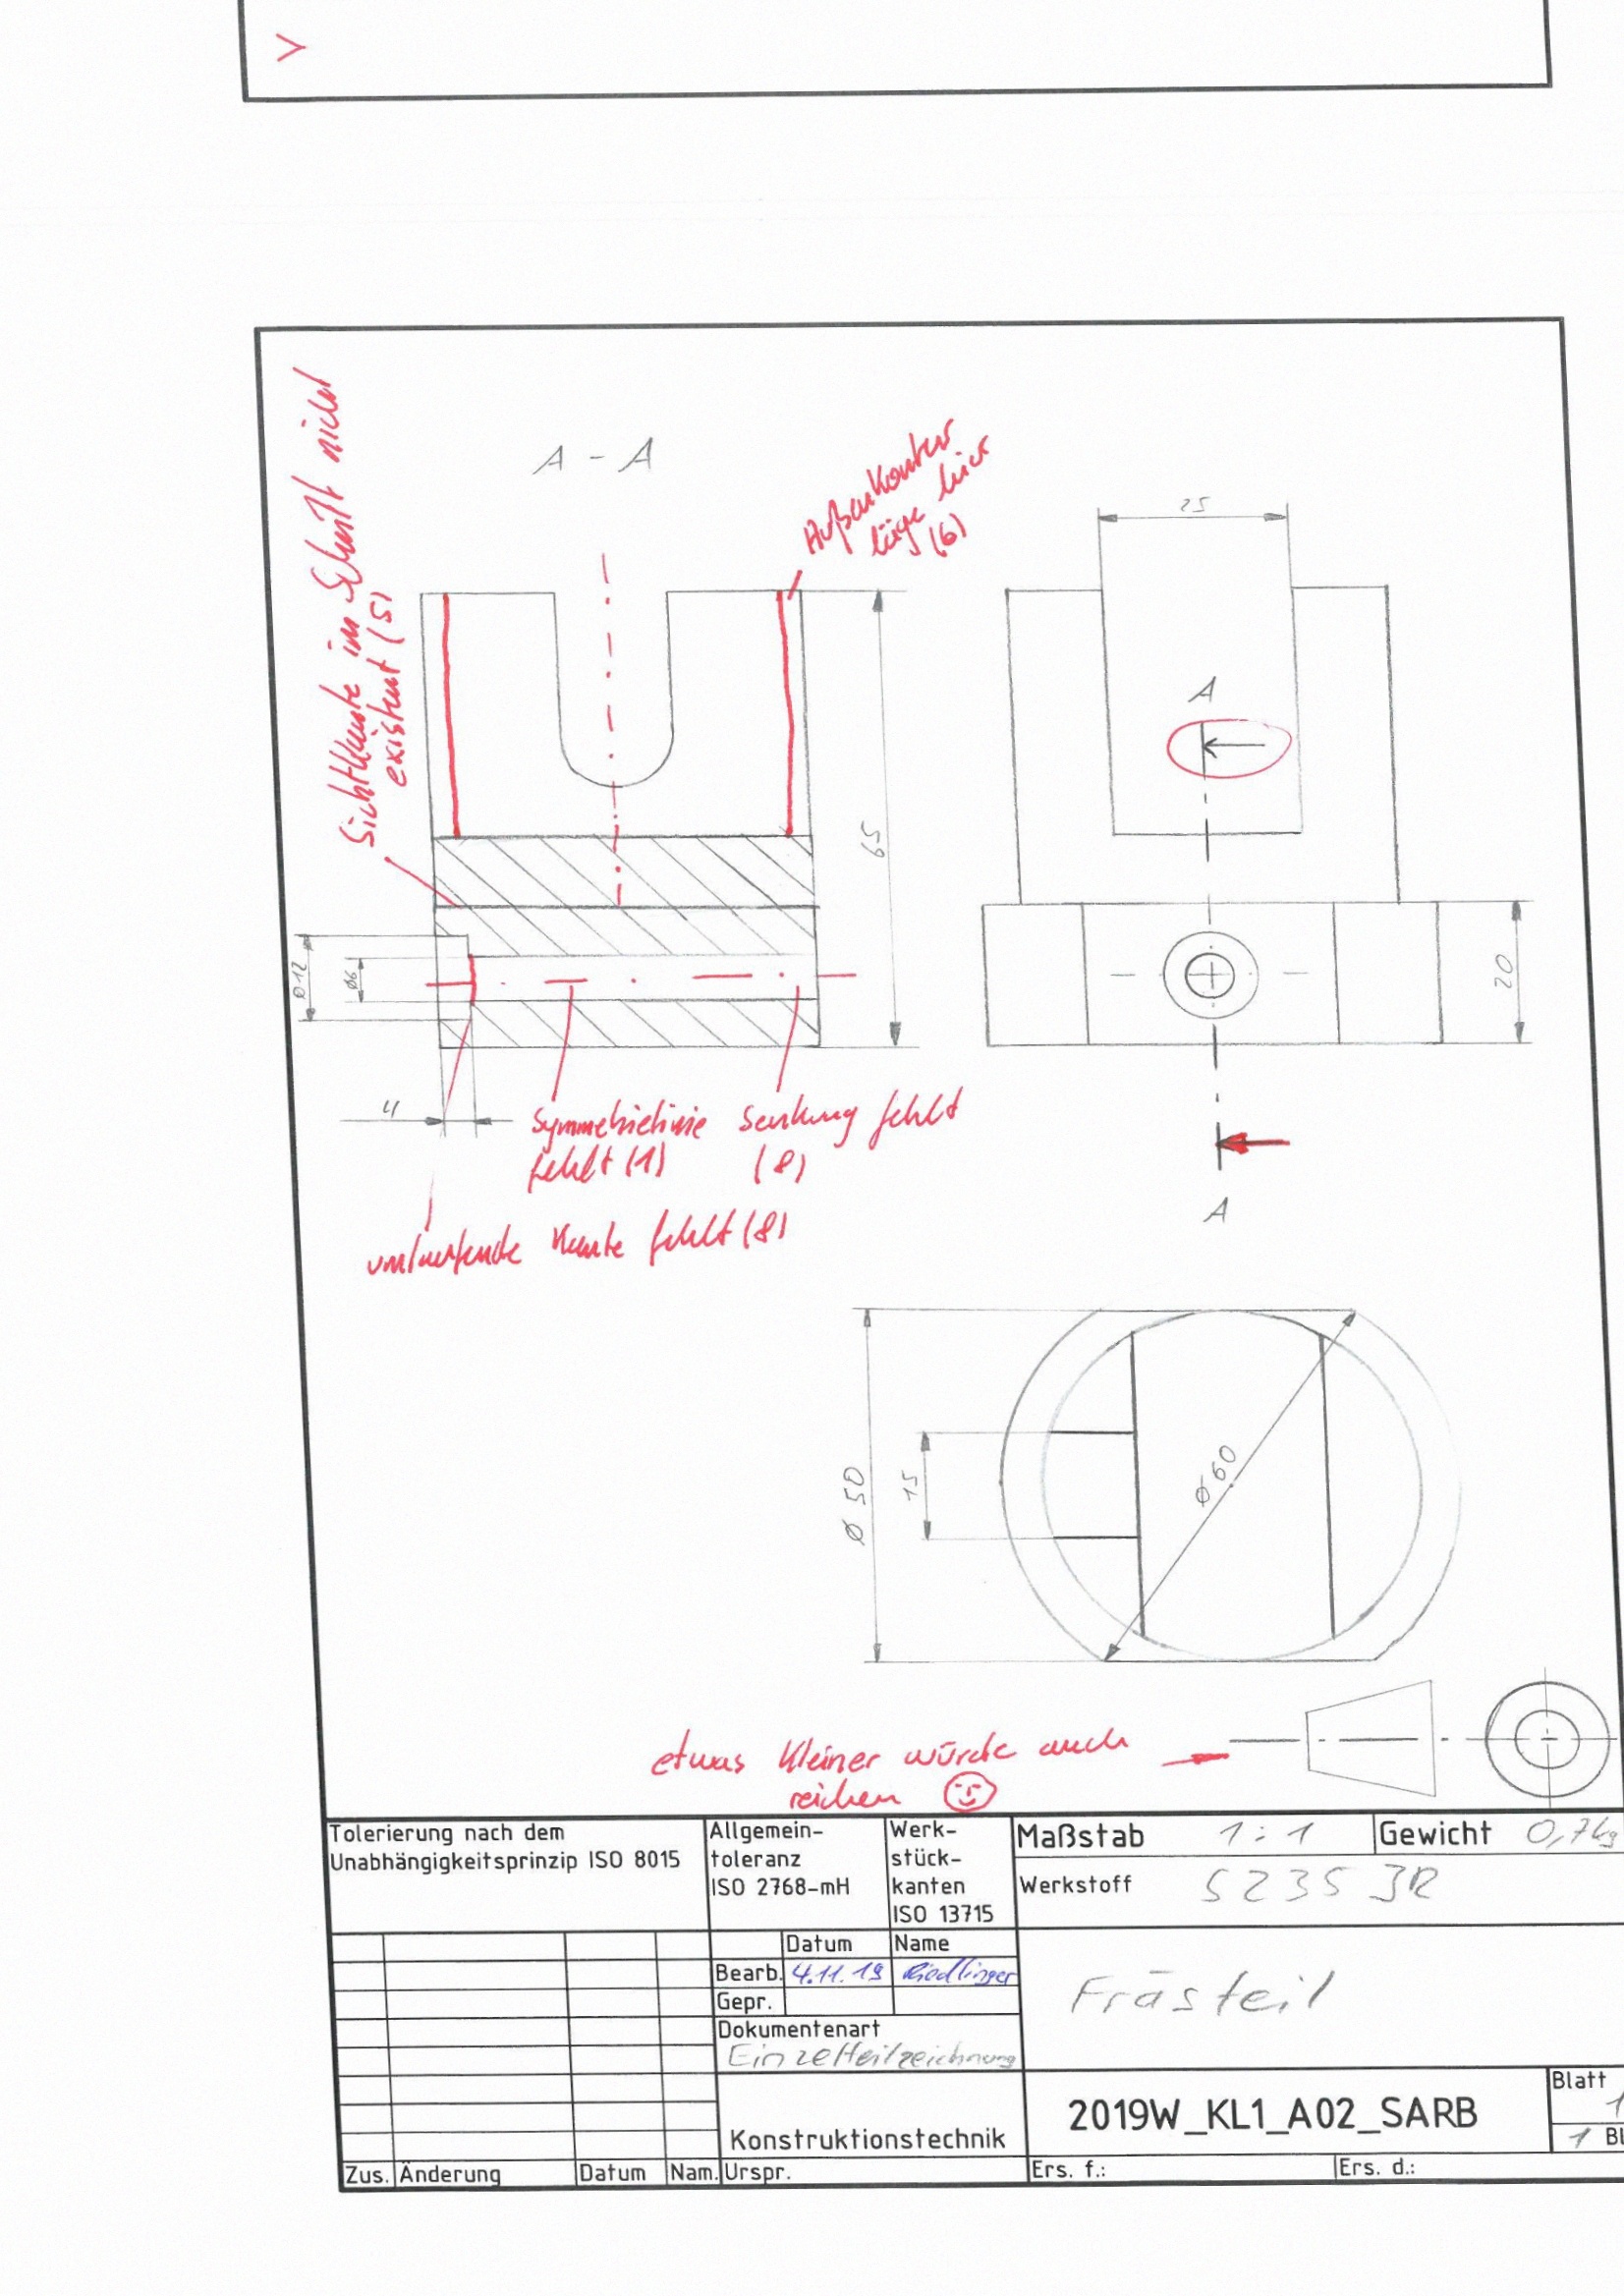 A - A
Sichtkante im Schnitt nicht
existent (5)
Außenkontur
läge hier
(6)
25
A
65
Ø12
Ø6
20
4
Symmetrielinie
fehlt (1)
Senkung fehlt
(8)
umlaufende Kante fehlt (8)
A
Ø 50
15
Ø 60
etwas kleiner würde auch
reichen
Tolerierung nach dem
Unabhängigkeitsprinzip ISO 8015
Allgemein-
toleranz
ISO 2768-mH
Werk-
stück-
kanten
ISO 13715
Maßstab 1:1
Gewicht 0,7kg
Werkstoff S235 JR
Datum Name
Bearb. 4.11.19 Riedlinger
Gepr.
Dokumentenart
Einzelteilzeichnung
Frästeil
Konstruktionstechnik
2019W_KL1_A02_SARB
Blatt
1
1 Bl
Zus. Änderung Datum Nam. Urspr.
Ers. f.: Ers. d.: